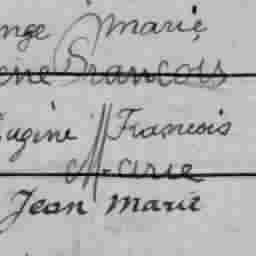 nge Marie
ene Francois
Eugène Francois
Marie
Jean Marie